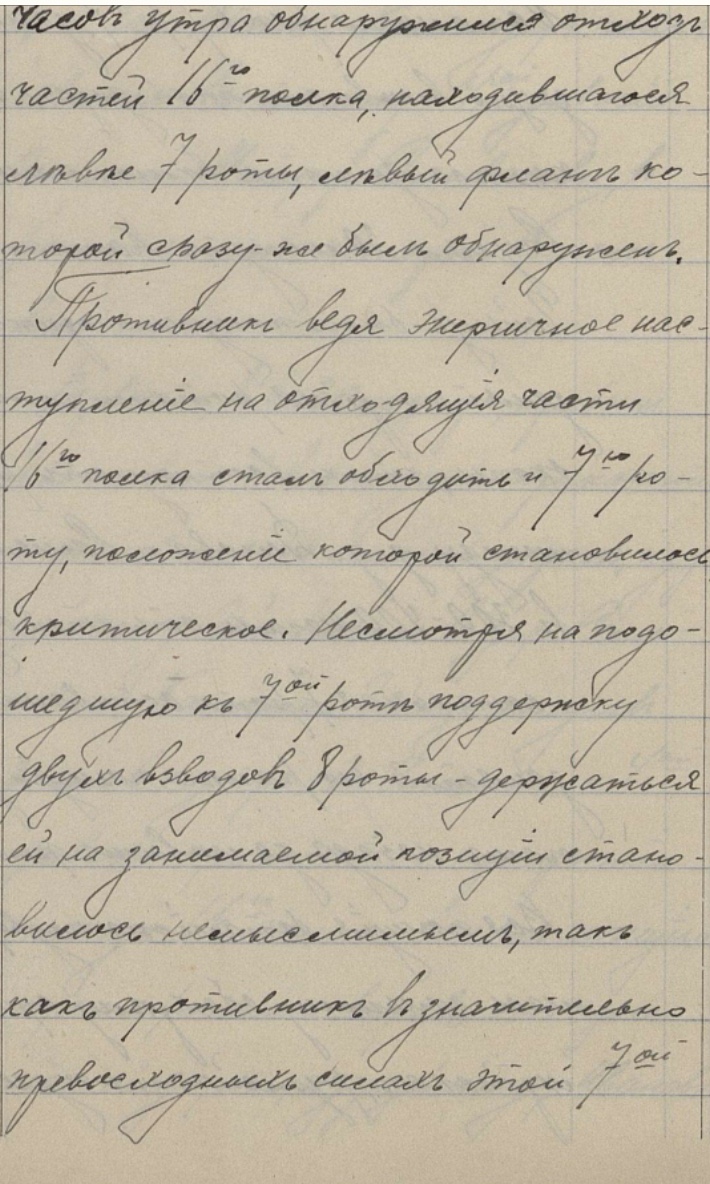 часовъ утра обнаружился отходъ
частей 16го полка, находившагося
лѣвѣе 7 роты, лѣвый флангъ ко-
торой сразу-же былъ обнаруженъ.
Противникъ ведя энергичное нас-
тупленіе на отходящія части
16го полка сталъ обходить и 7ую ро-
ту, положеніе которой становилось
критическое. Несмотря на подо-
шедшую къ 7ой ротѣ поддержку
двухъ взводовъ 8 роты - держаться
ей на занимаемой позиціи стано-
вилось немыслимымъ, такъ
какъ противникъ въ значительно
превосходныхъ силахъ этой 7ой